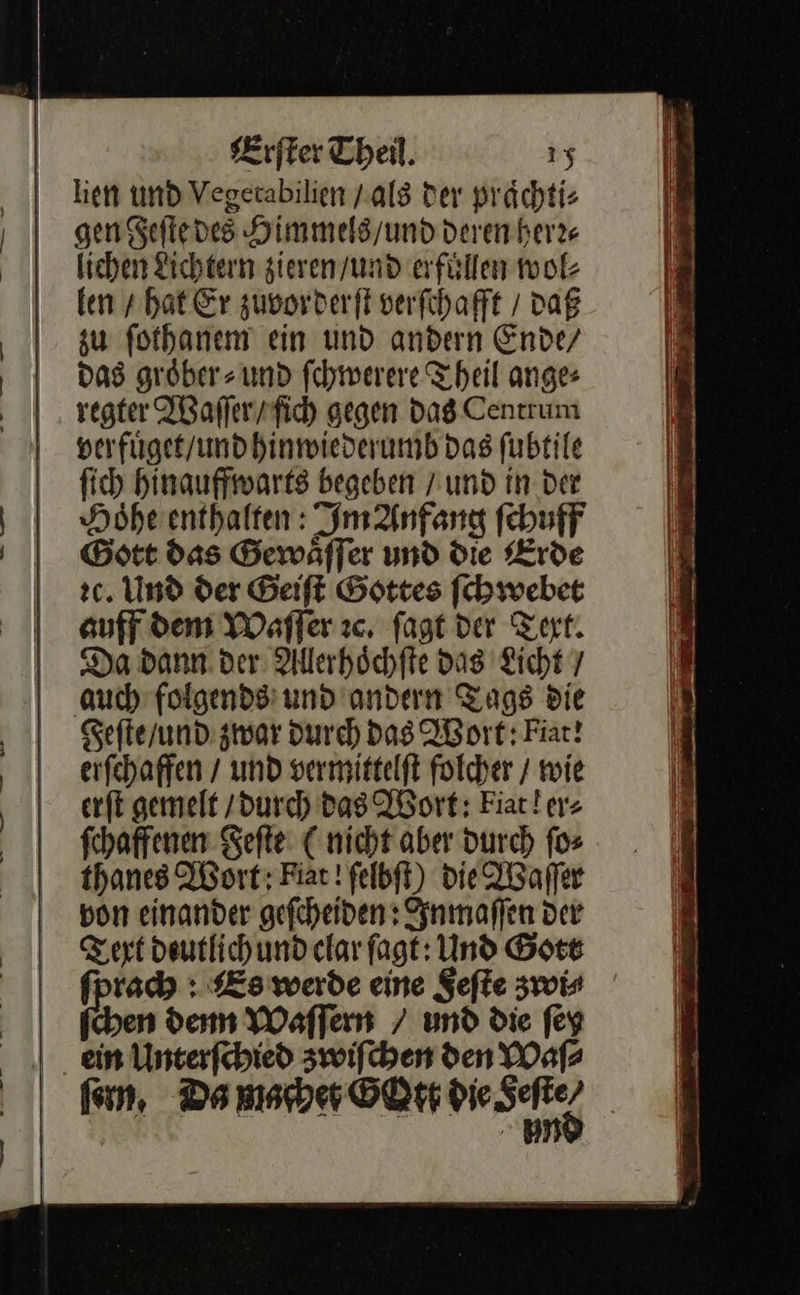 Erſter Theil. 15
lien und Vegetabilien / als der praͤchti⸗
gen Feſte des Himmels / und deren herꝛ⸗
lichen Lichtern zieren / und erfuͤllen wol⸗
len / hat Er zuvorderſt verſchafft / daß
zu ſothanem ein und andern Ende /
das groͤber⸗ und ſchwerere Theil ange⸗
regter Waſſer / ſich gegen das Centrum
verfuͤget / und hinwiederumb das ſubtile
ſich hinauffwarts begeben / und in der
Hoͤhe enthalten : Im Anfang ſchuff
Gott das Gewaͤſſer und die Erde
ꝛc. Und der Geiſt Gottes ſchwebet
auff dem Waſſer ꝛc. ſagt der Text.
Da dann der Allerhoͤchſte das Licht /
auch folgends und andern Tags die
Feſte / und zwar durch das Wort: Fiat!
erſchaffen / und vermittelſt ſolcher / wie
erſt gemelt / durch das Wort: Fiat! er⸗
ſchaffenen Feſte ( nicht aber durch ſo⸗
thanes Wort: Fiat! ſelbſt) die Waſſer
von einander geſcheiden: Inmaſſen der
Text deutlich und clar ſagt: Und Gott
ſprach : Es werde eine Feſte zwi⸗
ſchen denn Waſſern / und die ſey
ein Unterſchied zwiſchen den Waſ⸗
ſern. Da machet GOtt die Feſte /
und